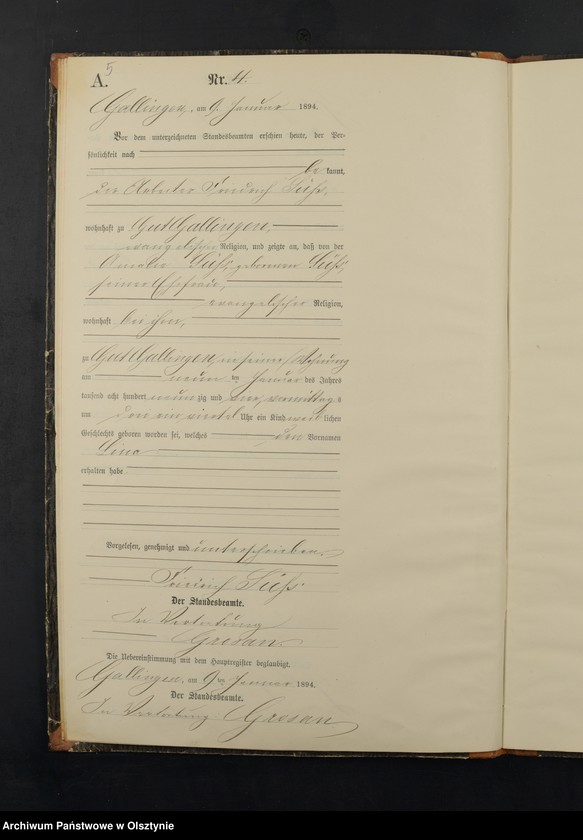 5
A.
Nr. 4.
Gallingen, am 9. Januar 1894.
Vor dem unterzeichneten Standesbeamten erschien heute, der Per-
sönlichkeit nach
be kannt,
der Arbeiter Friedrich Süß,
wohnhaft zu Gut Gallingen,
evangelischer Religion, und zeigte an, daß von der
Amalie Süß, geborenen Süß,
seiner Ehefrau,
evangelischer Religion,
wohnhaft bei ihm,
zu Gut Gallingen, in seiner Wohnung
am neunten Januar des Jahres
tausend acht hundert neunzig und vier, vormittags
um ein viertel Uhr ein Kind weiblichen
Geschlechts geboren worden sei, welches den Vornamen
Lina
erhalten habe
Vorgelesen, genehmigt und unterschrieben.
Friedrich Süß
Der Standesbeamte.
In Vertretung
Grosan
Die Uebereinstimmung mit dem Hauptregister beglaubigt.
Gallingen, am 9ten Januar 1894.
Der Standesbeamte.
In Vertretung Grosan
Archiwum Państwowe w Olsztynie